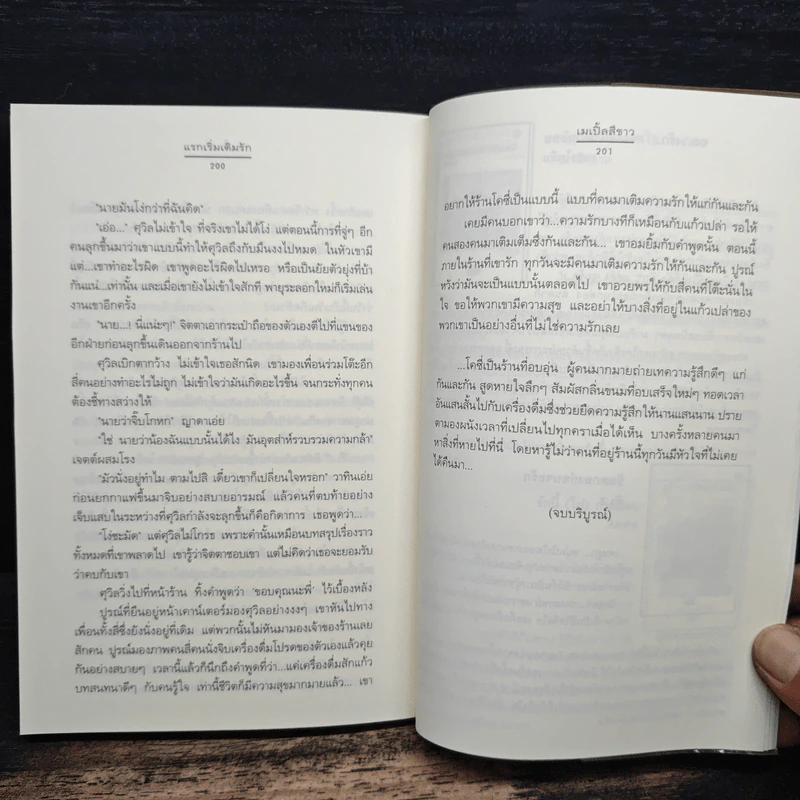 แรกเริ่มเติมรัก
200
"นายมันโง่กว่าที่ฉันคิด"
"เอ่อ..." ศุวิลไม่เข้าใจ ที่จริงเขาไม่ได้โง่ แต่ตอนนี้การที่จู่ๆ อีก
คนลุกขึ้นมาว่าเขาแบบนี้ทำให้ศุวิลถึงกับมึนงงไปหมด ในหัวเขามี
แต่...เขาทำอะไรผิด เขาพูดอะไรผิดไปเหรอ หรือเป็นยัยตัวยุ่งที่บ้า
กันแน่...เท่านั้น และเมื่อเขายังไม่เข้าใจสักที พายุระลอกใหม่ก็เริ่มเล่น
งานเขาอีกครั้ง
"นาย...! นี่แน่ะๆ!" จิตตาเอากระเป๋าถือของตัวเองตีไปที่แขนของ
อีกฝ่ายก่อนลุกขึ้นเดินออกจากร้านไป
ศุวิลเบิกตากว้าง ไม่เข้าใจเธอสักนิด เขามองเพื่อนร่วมโต๊ะอีก
สี่คนอย่างทำอะไรไม่ถูก ไม่เข้าใจว่ามันเกิดอะไรขึ้น จนกระทั่งทุกคน
ต้องชี้ทางสว่างให้
"นายว่าจี๊บโกหก" ญาดาเอ่ย
"ใช่ นายว่าน้องฉันแบบนั้นได้ไง มันอุตส่าห์รวบรวมความกล้า"
เจตต์ผสมโรง
"มัวนั่งอยู่ทำไม ตามไปสิ เดี๋ยวเขาก็เปลี่ยนใจหรอก" วาทินเอ่ย
ก่อนยกกาแฟขึ้นมาจิบอย่างสบายอารมณ์ แล้วคนที่ตบท้ายอย่าง
เจ็บแสบในระหว่างที่ศุวิลกำลังจะลุกขึ้นก็คือกิดาการ เธอพูดว่า...
"โง่ชะมัด" แต่ศุวิลไม่โกรธ เพราะคำนั้นเหมือนบทสรุปเรื่องราว
ทั้งหมดที่เขาพลาดไป เขารู้ว่าจิตตาชอบเขา แต่ไม่คิดว่าเธอจะยอมรับ
ว่าคบกับเขา
ศุวิลวิ่งไปที่หน้าร้าน ทิ้งคำพูดว่า 'ขอบคุณนะพี่' ไว้เบื้องหลัง
ปูรณ์ที่ยืนอยู่หน้าเคาน์เตอร์มองศุวิลอย่างงงๆ เขาหันไปทาง
เพื่อนทั้งสี่ซึ่งยังนั่งอยู่ที่เดิม แต่พวกนั้นไม่หันมามองเจ้าของร้านเลย
สักคน ปูรณ์มองภาพคนสี่คนนั่งจิบเครื่องดื่มโปรดของตัวเองแล้วคุย
กันอย่างสบายๆ เวลานี้แล้วก็นึกถึงคำพูดที่ว่า...แค่เครื่องดื่มสักแก้ว
บทสนทนาดีๆ กับคนรู้ใจ เท่านี้ชีวิตก็มีความสุขมากมายแล้ว... เขา
เมเปิ้ลสีขาว
201
อยากให้ร้านโคซี่เป็นแบบนี้ แบบที่คนมาเติมความรักให้แก่กันและกัน
เคยมีคนบอกเขาว่า...ความรักบางทีก็เหมือนกับแก้วเปล่า รอให้
คนสองคนมาเติมเต็มซึ่งกันและกัน... เขาอมยิ้มกับคำพูดนั้น ตอนนี้
ภายในร้านที่เขารัก ทุกวันจะมีคนมาเติมความรักให้กันและกัน ปูรณ์
หวังว่ามันจะเป็นแบบนั้นตลอดไป เขาอวยพรให้กับสี่คนที่โต๊ะนั่นใน
ใจ ขอให้พวกเขามีความสุข และอย่าให้บางสิ่งที่อยู่ในแก้วเปล่าของ
พวกเขาเป็นอย่างอื่นที่ไม่ใช่ความรักเลย
...โคซี่เป็นร้านที่อบอุ่น ผู้คนมากมายถ่ายเทความรู้สึกดีๆ แก่
กันและกัน สูดหายใจลึกๆ สัมผัสกลิ่นขนมที่อบเสร็จใหม่ๆ ทอดเวลา
อันแสนสั้นไปกับเครื่องดื่มซึ่งช่วยยืดความรู้สึกให้นานแสนนาน ปราย
ตามองผนังเวลาที่เปลี่ยนไปทุกคราเมื่อได้เห็น บางครั้งหลายคนมา
หาสิ่งที่หายไปที่นี่ โดยหารู้ไม่ว่าคนที่อยู่ร้านนี้ทุกวันมีหัวใจที่ไม่เคย
ได้คืนมา...
(จบบริบูรณ์)